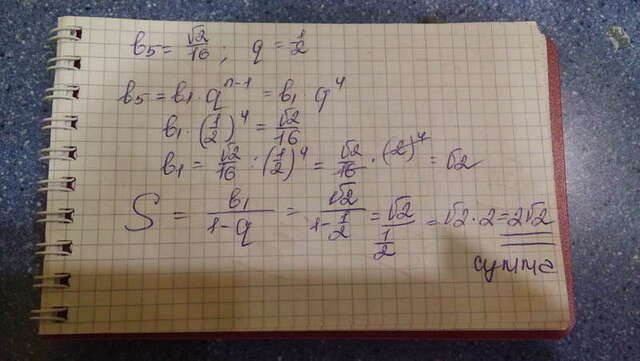 b₅ = √2/16 ; q = 1/2
b₅ = b₁ · qⁿ⁻¹ = b₁ q⁴
b₁ · (1/2)⁴ = √2/16
b₁ = √2/16 : (1/2)⁴ = √2/16 · (2)⁴ = √2
S = b₁/(1-q) = √2/(1-1/2) = √2/(1/2) = √2 · 2 = 2√2
сумма